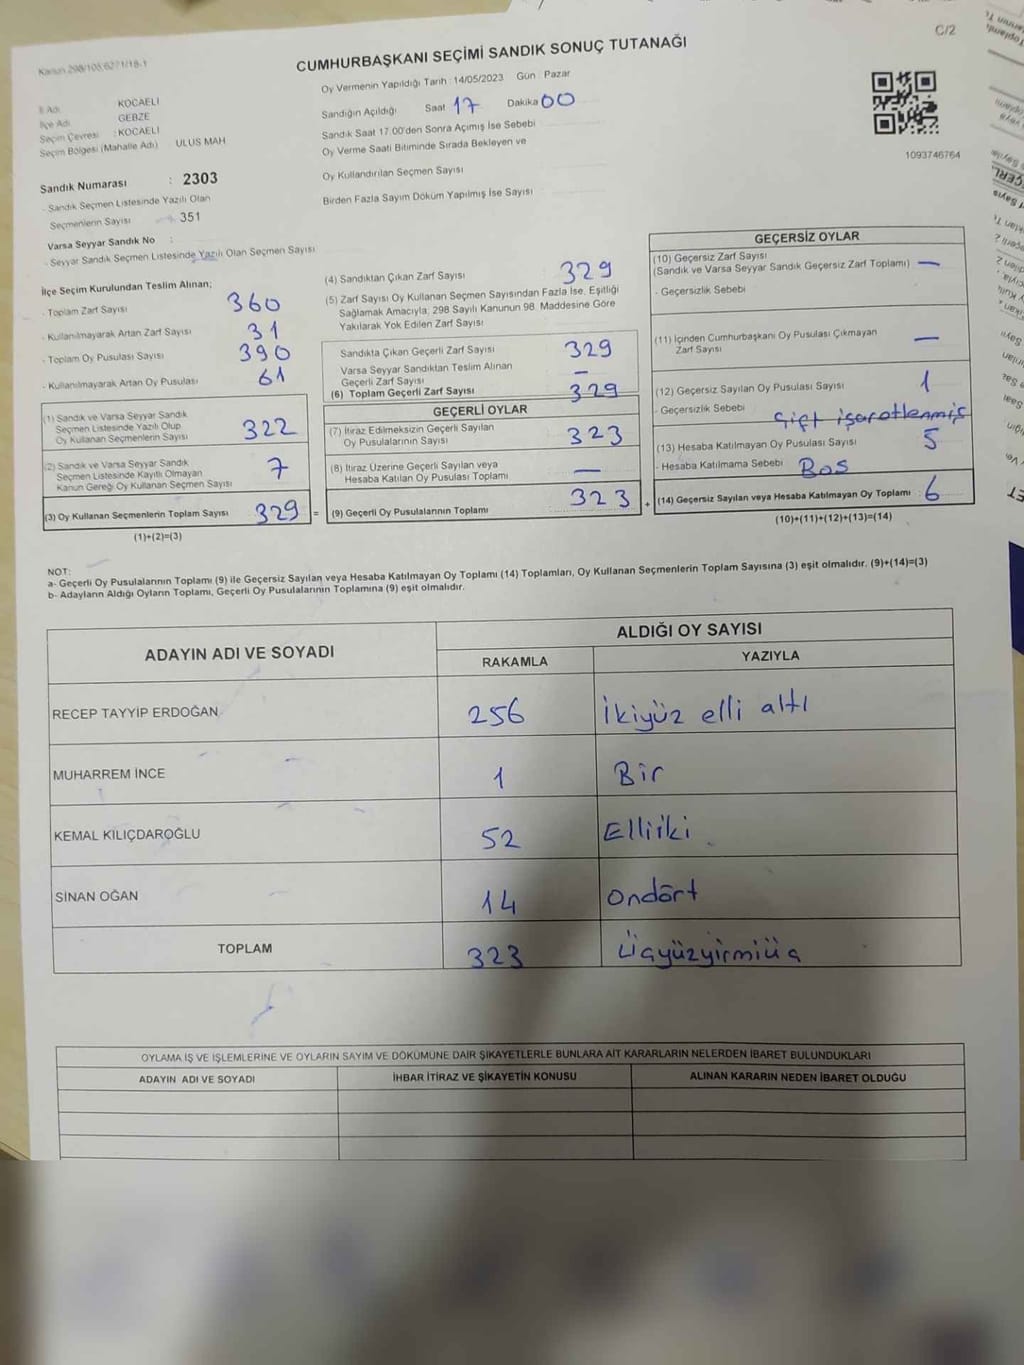 C/2
CUMHURBAŞKANI SEÇİMİ SANDIK SONUÇ TUTANAĞI
Oy Vermenin Yapıldığı Tarih : 14/05/2023 Gün : Pazar
İl Adı KOCAELİ
İlçe Adı GEBZE
Seçim Çevresi : KOCAELİ
Seçim Bölgesi (Mahalle Adı) ULUS MAH
Sandık Numarası : 2303
- Sandık Seçmen Listesinde Yazılı Olan
Seçmenlerin Sayısı 351
Varsa Seyyar Sandık No :
- Seyyar Sandık Seçmen Listesinde Yazılı Olan Seçmen Sayısı
Sandığın Açıldığı Saat 17 Dakika 00
Sandık Saat 17.00'den Sonra Açımış İse Sebebi
Oy Verme Saati Bitiminde Sırada Bekleyen ve
Oy Kullandırılan Seçmen Sayısı
Birden Fazla Sayım Döküm Yapılmış İse Sayısı
1093746764
İlçe Seçim Kurulundan Teslim Alınan;
- Toplam Zarf Sayısı 360
- Kullanılmayarak Artan Zarf Sayısı 31
- Toplam Oy Pusulası Sayısı 390
- Kullanılmayarak Artan Oy Pusulası 61
(1) Sandık ve Varsa Seyyar Sandık
Seçmen Listesinde Yazılı Olup
Oy Kullanan Seçmenlerin Sayısı 322
(2) Sandık ve Varsa Seyyar Sandık
Seçmen Listesinde Kayıtlı Olmayan
Kanun Gereği Oy Kullanan Seçmen Sayısı 7
(3) Oy Kullanan Seçmenlerin Toplam Sayısı 329 =
(1)+(2)=(3)
(4) Sandıktan Çıkan Zarf Sayısı 329
(5) Zarf Sayısı Oy Kullanan Seçmen Sayısından Fazla İse, Eşitliği
Sağlamak Amacıyla; 298 Sayılı Kanunun 98. Maddesine Göre
Yakılarak Yok Edilen Zarf Sayısı
Sandıkta Çıkan Geçerli Zarf Sayısı 329
Varsa Seyyar Sandıktan Teslim Alınan
Geçerli Zarf Sayısı —
(6) Toplam Geçerli Zarf Sayısı 329
GEÇERLİ OYLAR
(7) İtiraz Edilmeksizin Geçerli Sayılan
Oy Pusulalarının Sayısı 323
(8) İtiraz Üzerine Geçerli Sayılan veya
Hesaba Katılan Oy Pusulası Toplamı —
(9) Geçerli Oy Pusulalarının Toplamı 323 +
GEÇERSİZ OYLAR
(10) Geçersiz Zarf Sayısı
(Sandık ve Varsa Seyyar Sandık Geçersiz Zarf Toplamı) —
- Geçersizlik Sebebi
(11) İçinden Cumhurbaşkanı Oy Pusulası Çıkmayan
Zarf Sayısı —
(12) Geçersiz Sayılan Oy Pusulası Sayısı 1
- Geçersizlik Sebebi Çift işaretlenmiş
(13) Hesaba Katılmayan Oy Pusulası Sayısı 5
- Hesaba Katılmama Sebebi Boş
(14) Geçersiz Sayılan veya Hesaba Katılmayan Oy Toplamı : 6
(10)+(11)+(12)+(13)=(14)
NOT:
a- Geçerli Oy Pusulalarının Toplamı (9) ile Geçersiz Sayılan veya Hesaba Katılmayan Oy Toplamı (14) Toplamları, Oy Kullanan Seçmenlerin Toplam Sayısına (3) eşit olmalıdır. (9)+(14)=(3)
b- Adayların Aldığı Oyların Toplamı, Geçerli Oy Pusulalarının Toplamına (9) eşit olmalıdır.
ADAYIN ADI VE SOYADI
ALDIĞI OY SAYISI
RAKAMLA YAZIYLA
RECEP TAYYİP ERDOĞAN 256 İkiyüz elli altı
MUHARREM İNCE 1 Bir
KEMAL KILIÇDAROĞLU 52 Elliiki
SİNAN OĞAN 14 Ondört
TOPLAM 323 Üçyüzyirmiüç
OYLAMA İŞ VE İŞLEMLERİNE VE OYLARIN SAYIM VE DÖKÜMÜNE DAİR ŞİKAYETLERLE BUNLARA AİT KARARLARIN NELERDEN İBARET BULUNDUKLARI
ADAYIN ADI VE SOYADI İHBAR İTİRAZ VE ŞİKAYETİN KONUSU ALINAN KARARIN NEDEN İBARET OLDUĞU